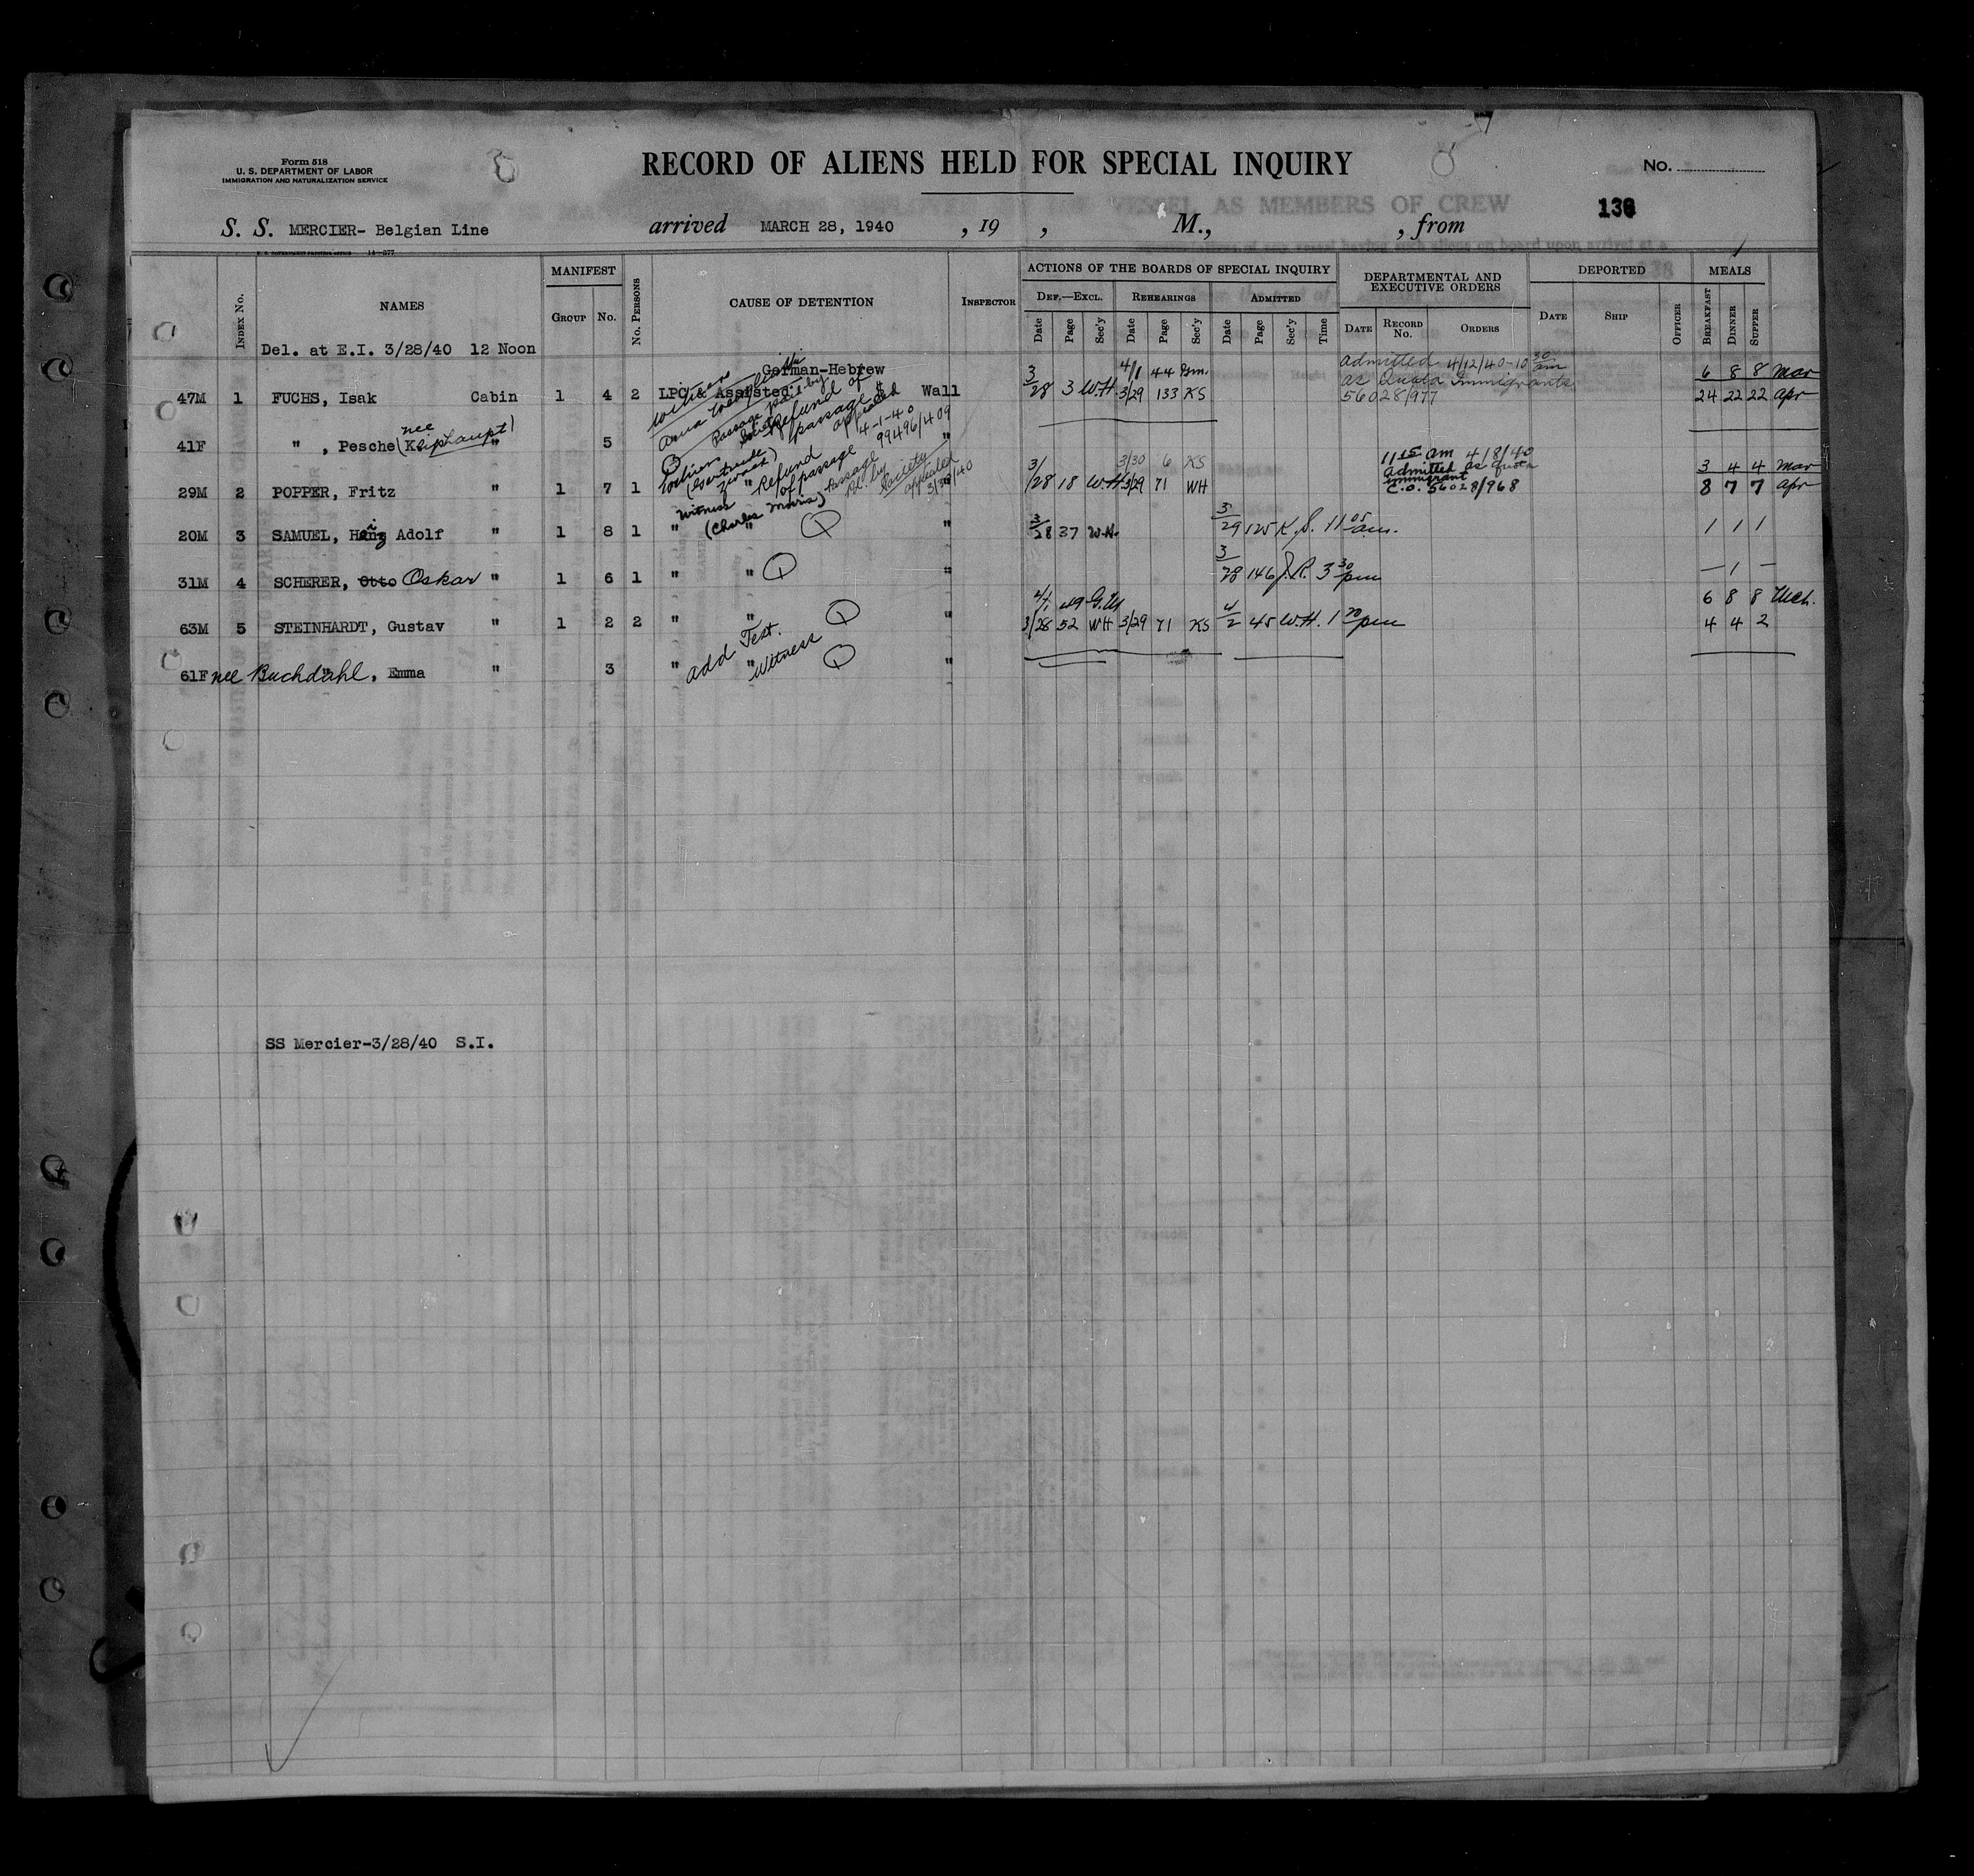 Form 518
U. S. DEPARTMENT OF LABOR
IMMIGRATION AND NATURALIZATION SERVICE
RECORD OF ALIENS HELD FOR SPECIAL INQUIRY
No.
138
S. S. MERCIER- Belgian Line arrived MARCH 28, 1940 , 19 , M., , from
INDEX No. NAMES MANIFEST GROUP No. No. PERSONS CAUSE OF DETENTION INSPECTOR
ACTIONS OF THE BOARDS OF SPECIAL INQUIRY
DEF.—EXCL. REHEARINGS ADMITTED
Date Page Sec'y Date Page Sec'y Date Page Sec'y Time
DEPARTMENTAL AND EXECUTIVE ORDERS
DATE RECORD No. ORDERS
DEPORTED
DATE SHIP OFFICER
MEALS
BREAKFAST DINNER SUPPER
Del. at E.I. 3/28/40 12 Noon
German-Hebrew
4/1 44
admitted 4/12/40-10 30 am
6 8 8 Mar
47M 1 FUCHS, Isak Cabin 1 4 2 LPC & Assisted Wall 3/28 3 W.H. 3/29 133 KS as Quota Immigrants 24 22 22 Apr
56028/977
Passage paid by
Refund of passage
4-1-40
99496/409
41F " , Pesche (nee 5 "
11 15 am 4/8/40
3/30 6 KS admitted as quota immigrant 3 4 4 Mar
29M 2 POPPER, Fritz " 1 7 1 " 3/28 18 W.H. 3/29 71 WH C.O. 56028/968 8 7 7 Apr
Refund of passage
appealed 3/30/40
Witness
(Charles Morris)
20M 3 SAMUEL, Adolf " 1 8 1 " " " 3/28 37 W.H. 3/29 125 K.S. 11 05 am. 1 1 1
31M 4 SCHERER, Otto Oskar " 1 6 1 " " " 3/28 146 J.R. 3 30 pm — 1 —
4/1 49 G.M 6 8 8 Mch.
63M 5 STEINHARDT, Gustav " 1 2 2 " " " 3/28 52 WH 3/29 71 KS 4/2 45 W.H. 1 20 pm 4 4 2
add Test.
Witness
61F nee Buchdahl, Emma " 3 " " "
SS Mercier-3/28/40 S.I.